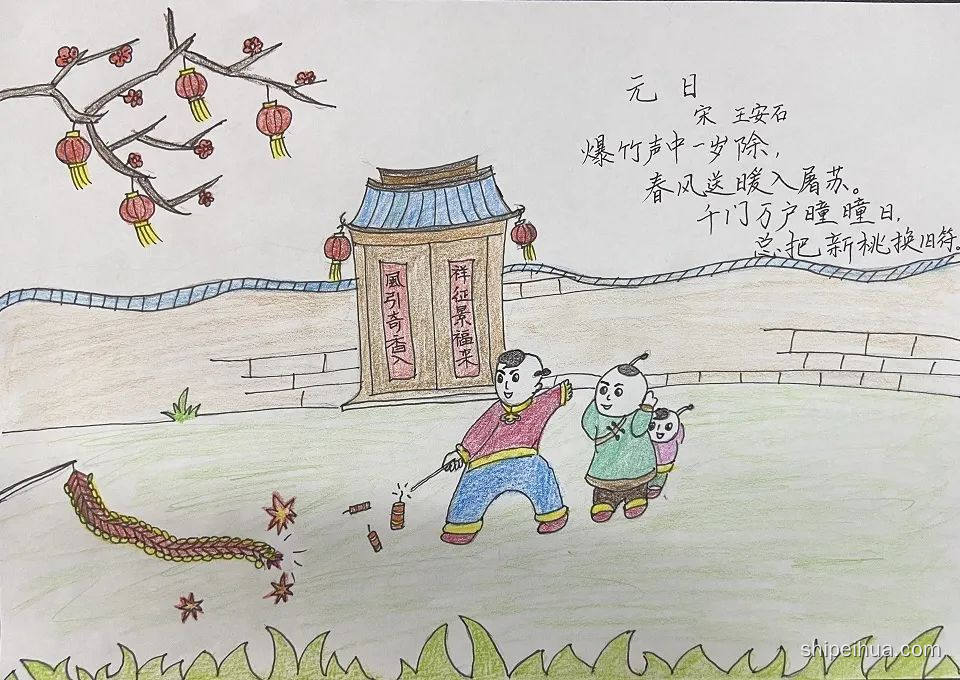 元日
宋 王安石
爆竹声中一岁除，
春风送暖入屠苏。
千门万户瞳瞳日，
总把新桃换旧符。
祥征景福来
風引奇香入
shipeihua.com